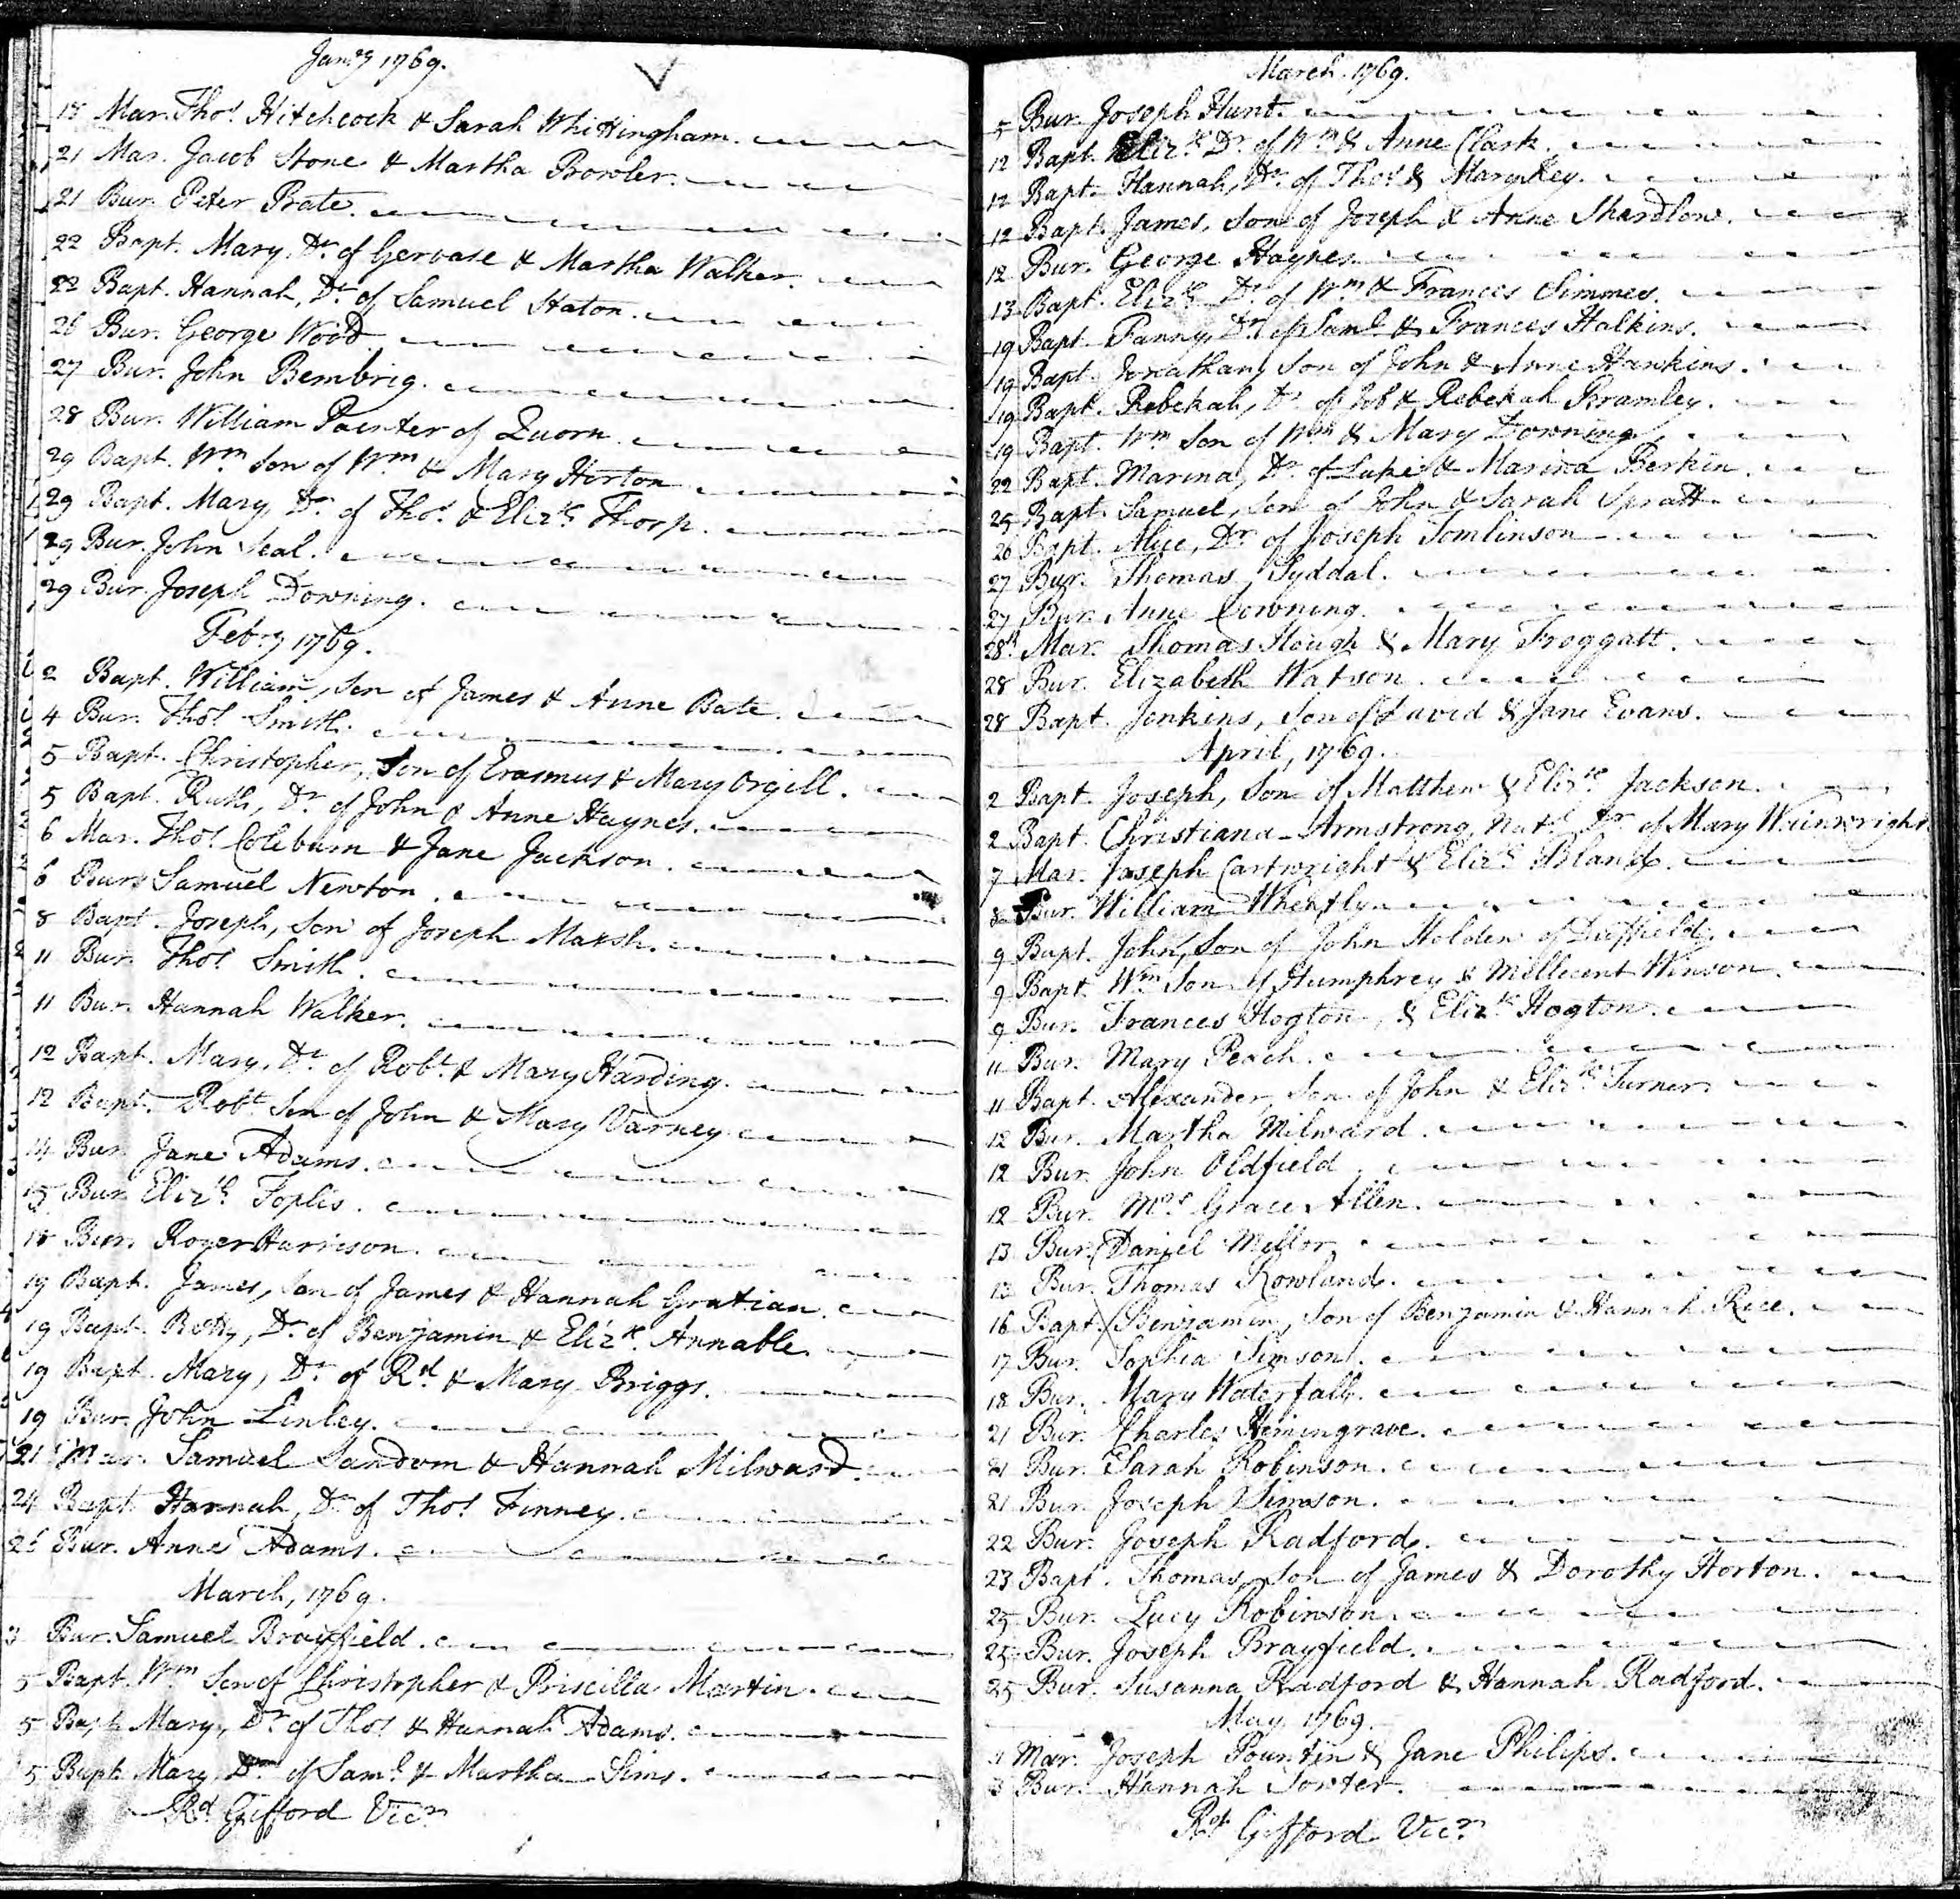 Jan.ry 1769.
18 Mar. Tho.s Hitchcock & Sarah Whittingham.
21 Mar. Jacob Stone & Martha Browler.
21 Bur. Peter Prate.
22 Bapt. Mary, D.r of Gervase & Martha Walker.
22 Bapt. Hannah, D.r of Samuel Staton.
26 Bur. George Wood
27 Bur. John Bembrig.
28 Bur. William Painter of Quorn
29 Bapt. W.m Son of W.m & Mary Horton
29 Bapt. Mary, D.r of Tho.s & Eliz.th Thorp.
29 Bur. John Seal.
29 Bur. Joseph Downing.
Feb.ry 1769.
2 Bapt. William, Son of James & Anne Bate.
4 Bur. Tho.s Smith.
5 Bapt. Christopher, Son of Erasmus & Mary Orgill.
5 Bapt. Ruth, D.r of John & Anne Haynes.
6 Mar. Tho.s Coleburn & Jane Jackson.
6 Bur. Samuel Newton.
8 Bapt. Joseph, Son of Joseph Marsh.
11 Bur. Tho.s Smith.
11 Bur. Hannah Walker.
12 Bapt. Mary, D.r of Rob.t & Mary Harding.
12 Bapt. Rob.t Son of John & Mary Varney
14 Bur. Jane Adams.
15 Bur. Eliz.th Toplis.
18 Bur. Roger Harrison.
19 Bapt. James, Son of James & Hannah Gratian.
19 Bapt. Betty, D.r of Benjamin & Eliz.th Annable.
19 Bapt. Mary, D.r of R.d & Mary Briggs.
19 Bur. John Linley.
21 Mar. Samuel Sandom & Hannah Milward.
24 Bapt. Hannah, D.r of Tho.s Finney.
26 Bur. Anne Adams.
March, 1769.
3 Bur. Samuel Brayfield.
5 Bapt. W.m Son of Christopher & Priscilla Martin.
5 Bapt. Mary, D.r of Tho.s & Hannah Adams.
5 Bapt. Mary, D.r of Sam.l & Martha Sims.
R.d Gifford Vic.r
March. 1769.
5 Bur. Joseph Hunt.
12 Bapt. Eliz.th D.r of W.m & Anne Clark.
12 Bapt. Hannah, D.r of Tho.s & Mary Key.
12 Bapt. James, Son of Joseph & Anne Shardlow.
12 Bur. George Haynes.
13 Bapt. Eliz.th D.r of W.m & Frances Simmes.
19 Bapt. Fanny, D.r of Sam.l & Frances Halkins.
19 Bapt. Jonathan, Son of John & Anne Hawkins.
19 Bapt. Rebekah, D.r of Job & Rebekah Bramley.
19 Bapt. W.m Son of W.m & Mary Downing
22 Bapt. Marina, D.r of Luke & Marina Berkin.
25 Bapt. Samuel, Son of John & Sarah Spratt.
26 Bapt. Alice, D.r of Joseph Tomlinson
27 Bur. Thomas Syddal.
27 Bur. Anne Downing.
28.th Mar. Thomas Hough & Mary Froggatt.
28 Bur. Elizabeth Watson.
28 Bapt. Jenkins, Son of David & Jane Evans.
April, 1769.
2 Bapt. Joseph, Son of Matthew & Eliz.th Jackson.
2 Bapt. Christiana Armstrong, Nat.l D.r of Mary Wainwright
7 Mar. Joseph Cartwright & Eliz.th Bland.
8 Bur. William Wheatly.
9 Bapt. John, Son of John Holden of Duffield.
9 Bapt. W.m Son of Humphrey & Millecent Winson.
9 Bur. Frances Hogton, & Eliz.th Hogton.
11 Bur. Mary Peach.
11 Bapt. Alexander, Son of John & Eliz.th Turner.
12 Bur. Martha Milward.
12 Bur. John Oldfield.
12 Bur. M.rs Grace Allen.
13 Bur. Daniel Mellor.
13 Bur. Thomas Rowland.
16 Bapt. Benjamin, Son of Benjamin & Hannah Rice.
17 Bur. Sophia Simson.
18 Bur. Mary Waterfall.
21 Bur. Charles Hemingrave.
21 Bur. Sarah Robinson.
21 Bur. Joseph Simson.
22 Bur. Joseph Radford.
23 Bapt. Thomas, Son of James & Dorothy Horton.
25 Bur. Lucy Robinson.
25 Bur. Joseph Brayfield.
25 Bur. Susanna Radford & Hannah Radford.
May 1769.
1 Mar. Joseph Pountin & Jane Philips.
3 Bur. Hannah Sowter.
R.d Gifford Vic.r